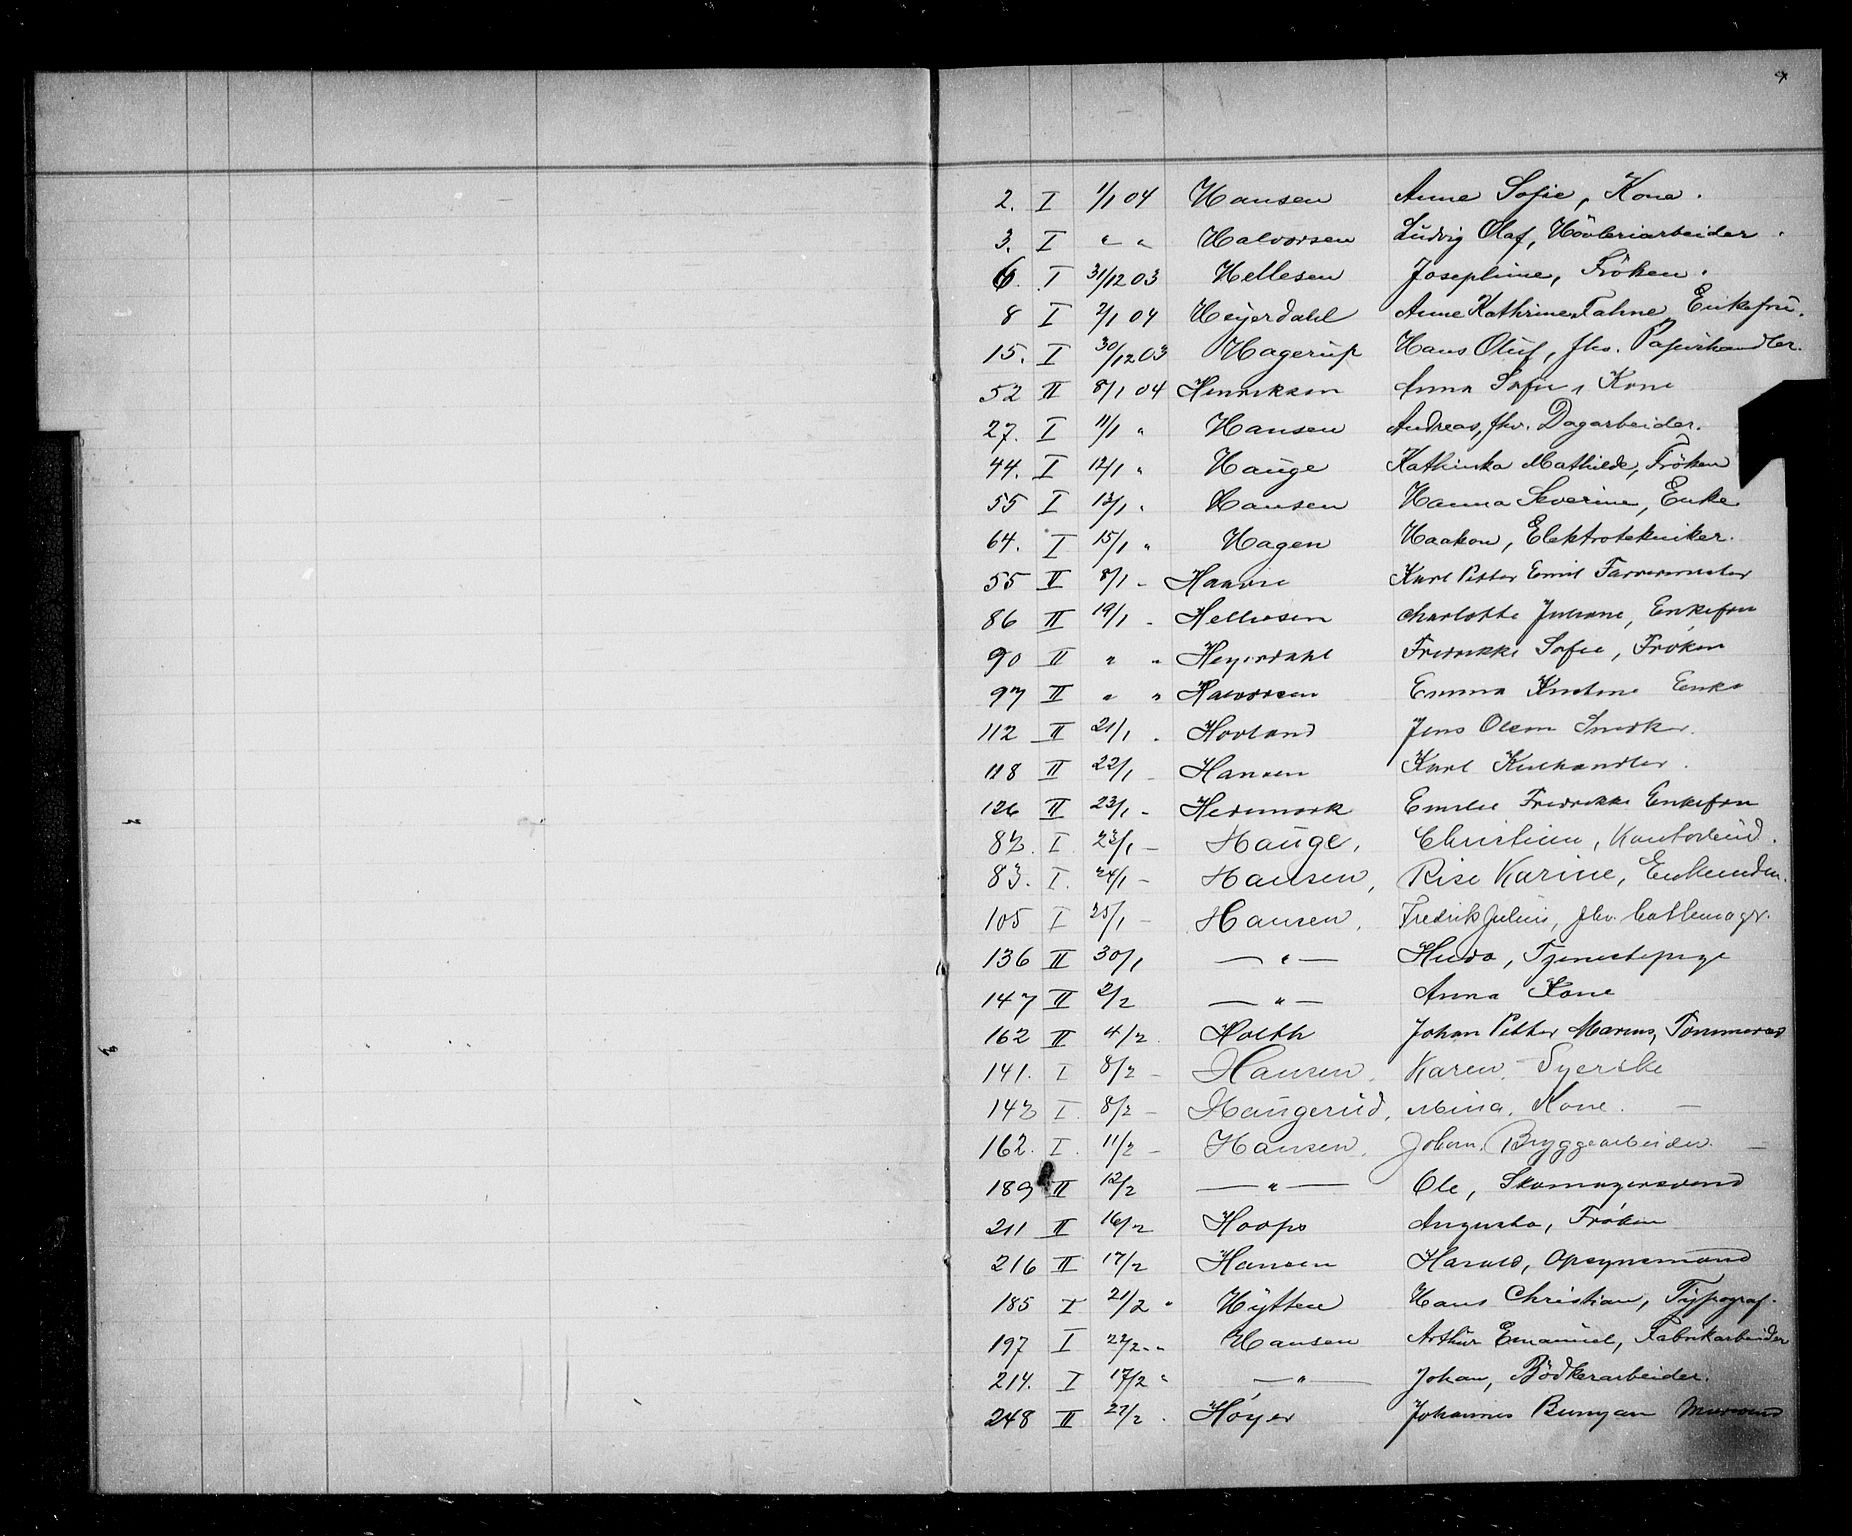 2. I 1/1 04 Hansen Anne Sofie, Kone.
3. I " " Halvorsen Ludvig Olaf, Høvleriarbeider.
6. I 31/12 03 Hellesen Josephine, Frøken.
8 I 2/1 04 Heyerdahl Anne Kathrine Enkefru.
15. I 30/12 03 Hagerup Hans Oluf, fhv. Papirhandler.
52 II 8/1 04 Henriksen Anna Sofie, Kone
27. I 11/1 " Hansen Andreas, fhv. Dagarbeider.
44. I 12/1 " Hauge Kathinka Mathilde, Frøken
55 I 13/1 " Hansen Hanna Severine, Enke
64. I 15/1 " Hagen Haakon, Elektrotekniker.
55 II 8/1 - Karl Petter Emil Farvermester
86 II 19/1 - Helliesen Charlotte Juliane, Enkefru
90 II " " Heyerdahl Fredrikke Sofie, Frøken
97 II " " Halvorsen Emma Kristine Enke
112 II 21/1 - Hovland Jens Olsen Snedker.
118 II 22/1 - Hansen Karl Kulhandler.
126 II 23/1 - Hedemark Emilie Fredrikke Enkefru
82. I 23/1 - Hauge, Christian, Kontorbud.
83. I. 24/1 - Hansen, Risi Karine,
105 I 25/1 - Hansen, Fredrik Julius, fhv.
136 II 30/1 — " — Hulda, Tjenestepige
147 II 2/2 — " — Anna Kone
162 II 4/2 Holth Johan Petter Marius,
141. I 8/2 - Hansen, Karen, Syerske
143 I. 8/2 - Haugerud, Mina, Kone. —
162. I. 11/2 - Hansen, Johan, Bryggearbeider. —
189 II 12/2 — " — Ole, Skomagersvend
211 II 16/2 Hoops Augusta, Frøken
216 II 17/2 Hansen Harald, Opsynsmand
185 I 21/2 " Hytten Hans Christian, Typograf.
197 I 22/2 " Hansen Arthur Emanuel, Fabrikarbeider
214. I 17/2 " — " — Johan, Bødkerarbeider.
248 II 27/2 . Høyer Johannes Bunyan Mursvend